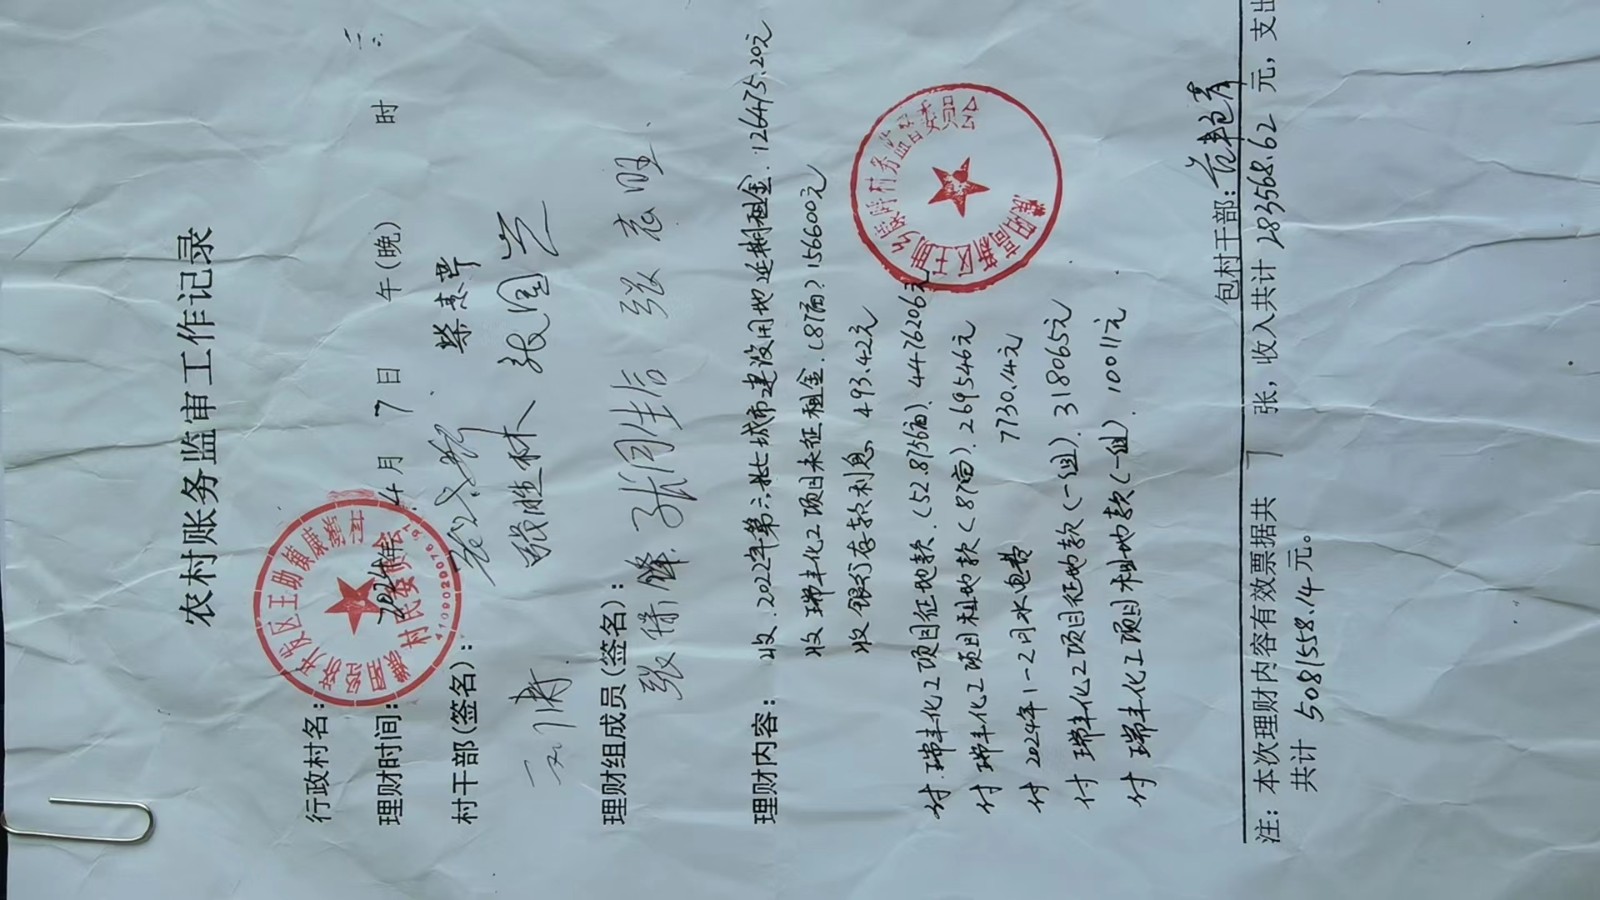 农村账务监审工作记录
行政村名:
理财时间: 2024年 4 月 7 日 午(晚) 时
村干部(签名):
张胜林 张国兴
理财组成员(签名):
张保锋 张同生 张志旺
理财内容: 收.2022年第六批城市建设用地延期租金.126475.20元
收 瑞丰化工项目未征租金.(87亩)156600元
收 银行存款利息 493.42元
付.瑞丰化工项目征地款.(52.8136亩).4476206元
付 瑞丰化工项目租地款(87亩).269546元
付 2024年1-2月水电费 7730.14元
付 瑞丰化工项目征地款(一组).318065元
付 瑞丰化工项目租地款(一组).10011元
村务监督委员会
包村干部:
注: 本次理财内容有效票据共 7 张, 收入共计 283568.62 元, 支出
共计 5081558.14 元。